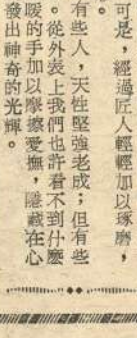 可是，經過匠人輕輕加以琢磨，
。
有些人，天性堅強老成；但有些
。從外表上我們也許看不到什麼
暖的手加以摩擦愛撫，隱藏在心
發出神奇的光輝。